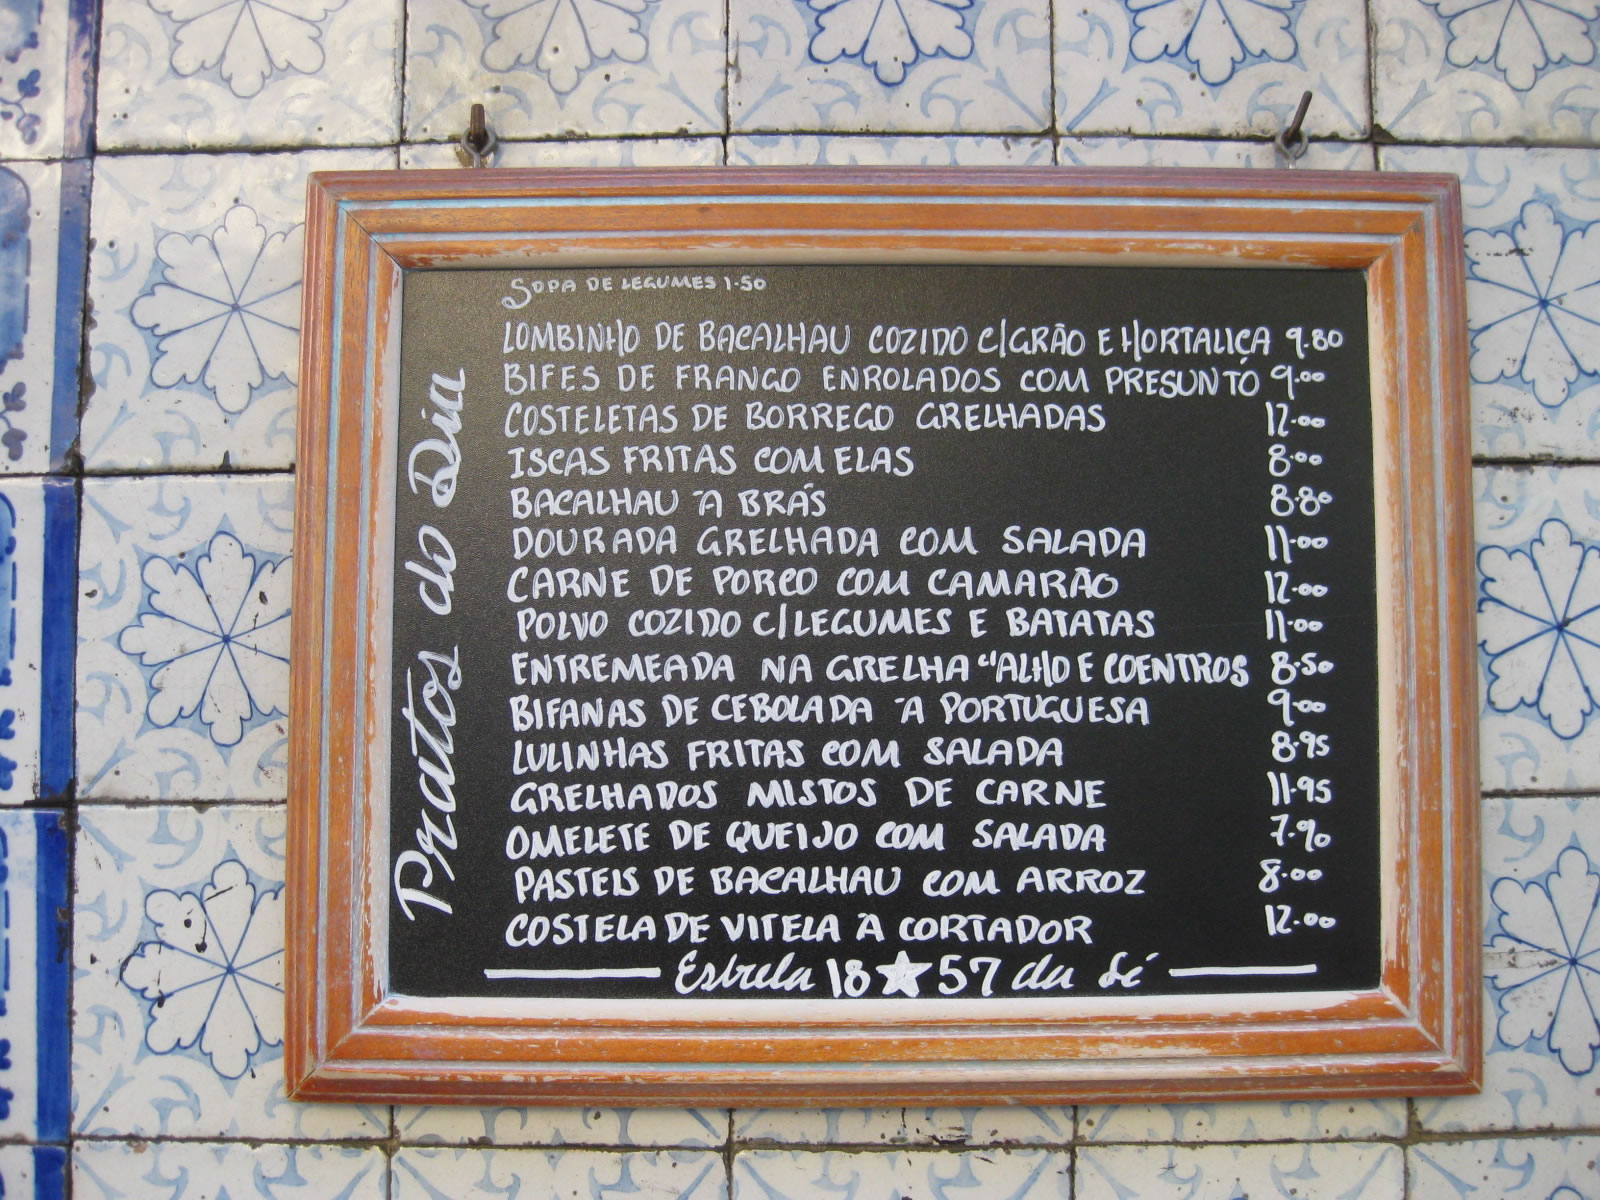 Pratos do Dia
SOPA DE LEGUMES 1.50
LOMBINHO DE BACALHAU COZIDO C/GRÃO E HORTALIÇA 9.80
BIFES DE FRANGO ENROLADOS COM PRESUNTO 9.00
COSTELETAS DE BORREGO GRELHADAS 12.00
ISCAS FRITAS COM ELAS 8.00
BACALHAU À BRÁS 8.80
DOURADA GRELHADA COM SALADA 11.00
CARNE DE PORCO COM CAMARÃO 12.00
POLVO COZIDO C/LEGUMES E BATATAS 11.00
ENTREMEADA NA GRELHA "ALHO E COENTROS 8.50
BIFANAS DE CEBOLADA À PORTUGUESA 9.00
LULINHAS FRITAS COM SALADA 8.95
GRELHADOS MISTOS DE CARNE 11.95
OMELETE DE QUEIJO COM SALADA 7.90
PASTEIS DE BACALHAU COM ARROZ 8.00
COSTELA DE VITELA À CORTADOR 12.00
Estrela 18★57 da Sé